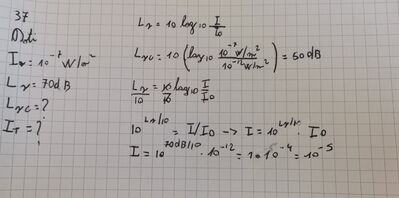 37
Dati
I_r = 10^-7 W/m²
L_r = 70dB
L_rc = ?
I_T = ?
L_r = 10 log₁₀ I/I₀
L_rc = 10 (log₁₀ 10^-7 W/m² / 10^-12 W/m²) = 50 dB
L_r/10 = 10/10 log₁₀ I/I₀
10^(L_r/10) = I/I₀ -> I = 10^(L_r/10) · I₀
I = 10^(70dB/10) · 10^-12 = 1·10^-4 = 10^-5